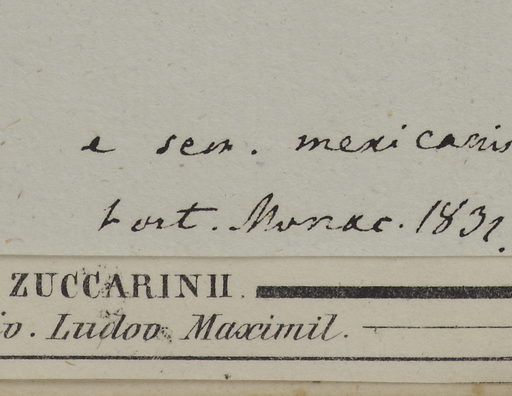 e sem. mexicanis
hort. Monac. 1831.
ZUCCARINII.
io. Ludov. Maximil.